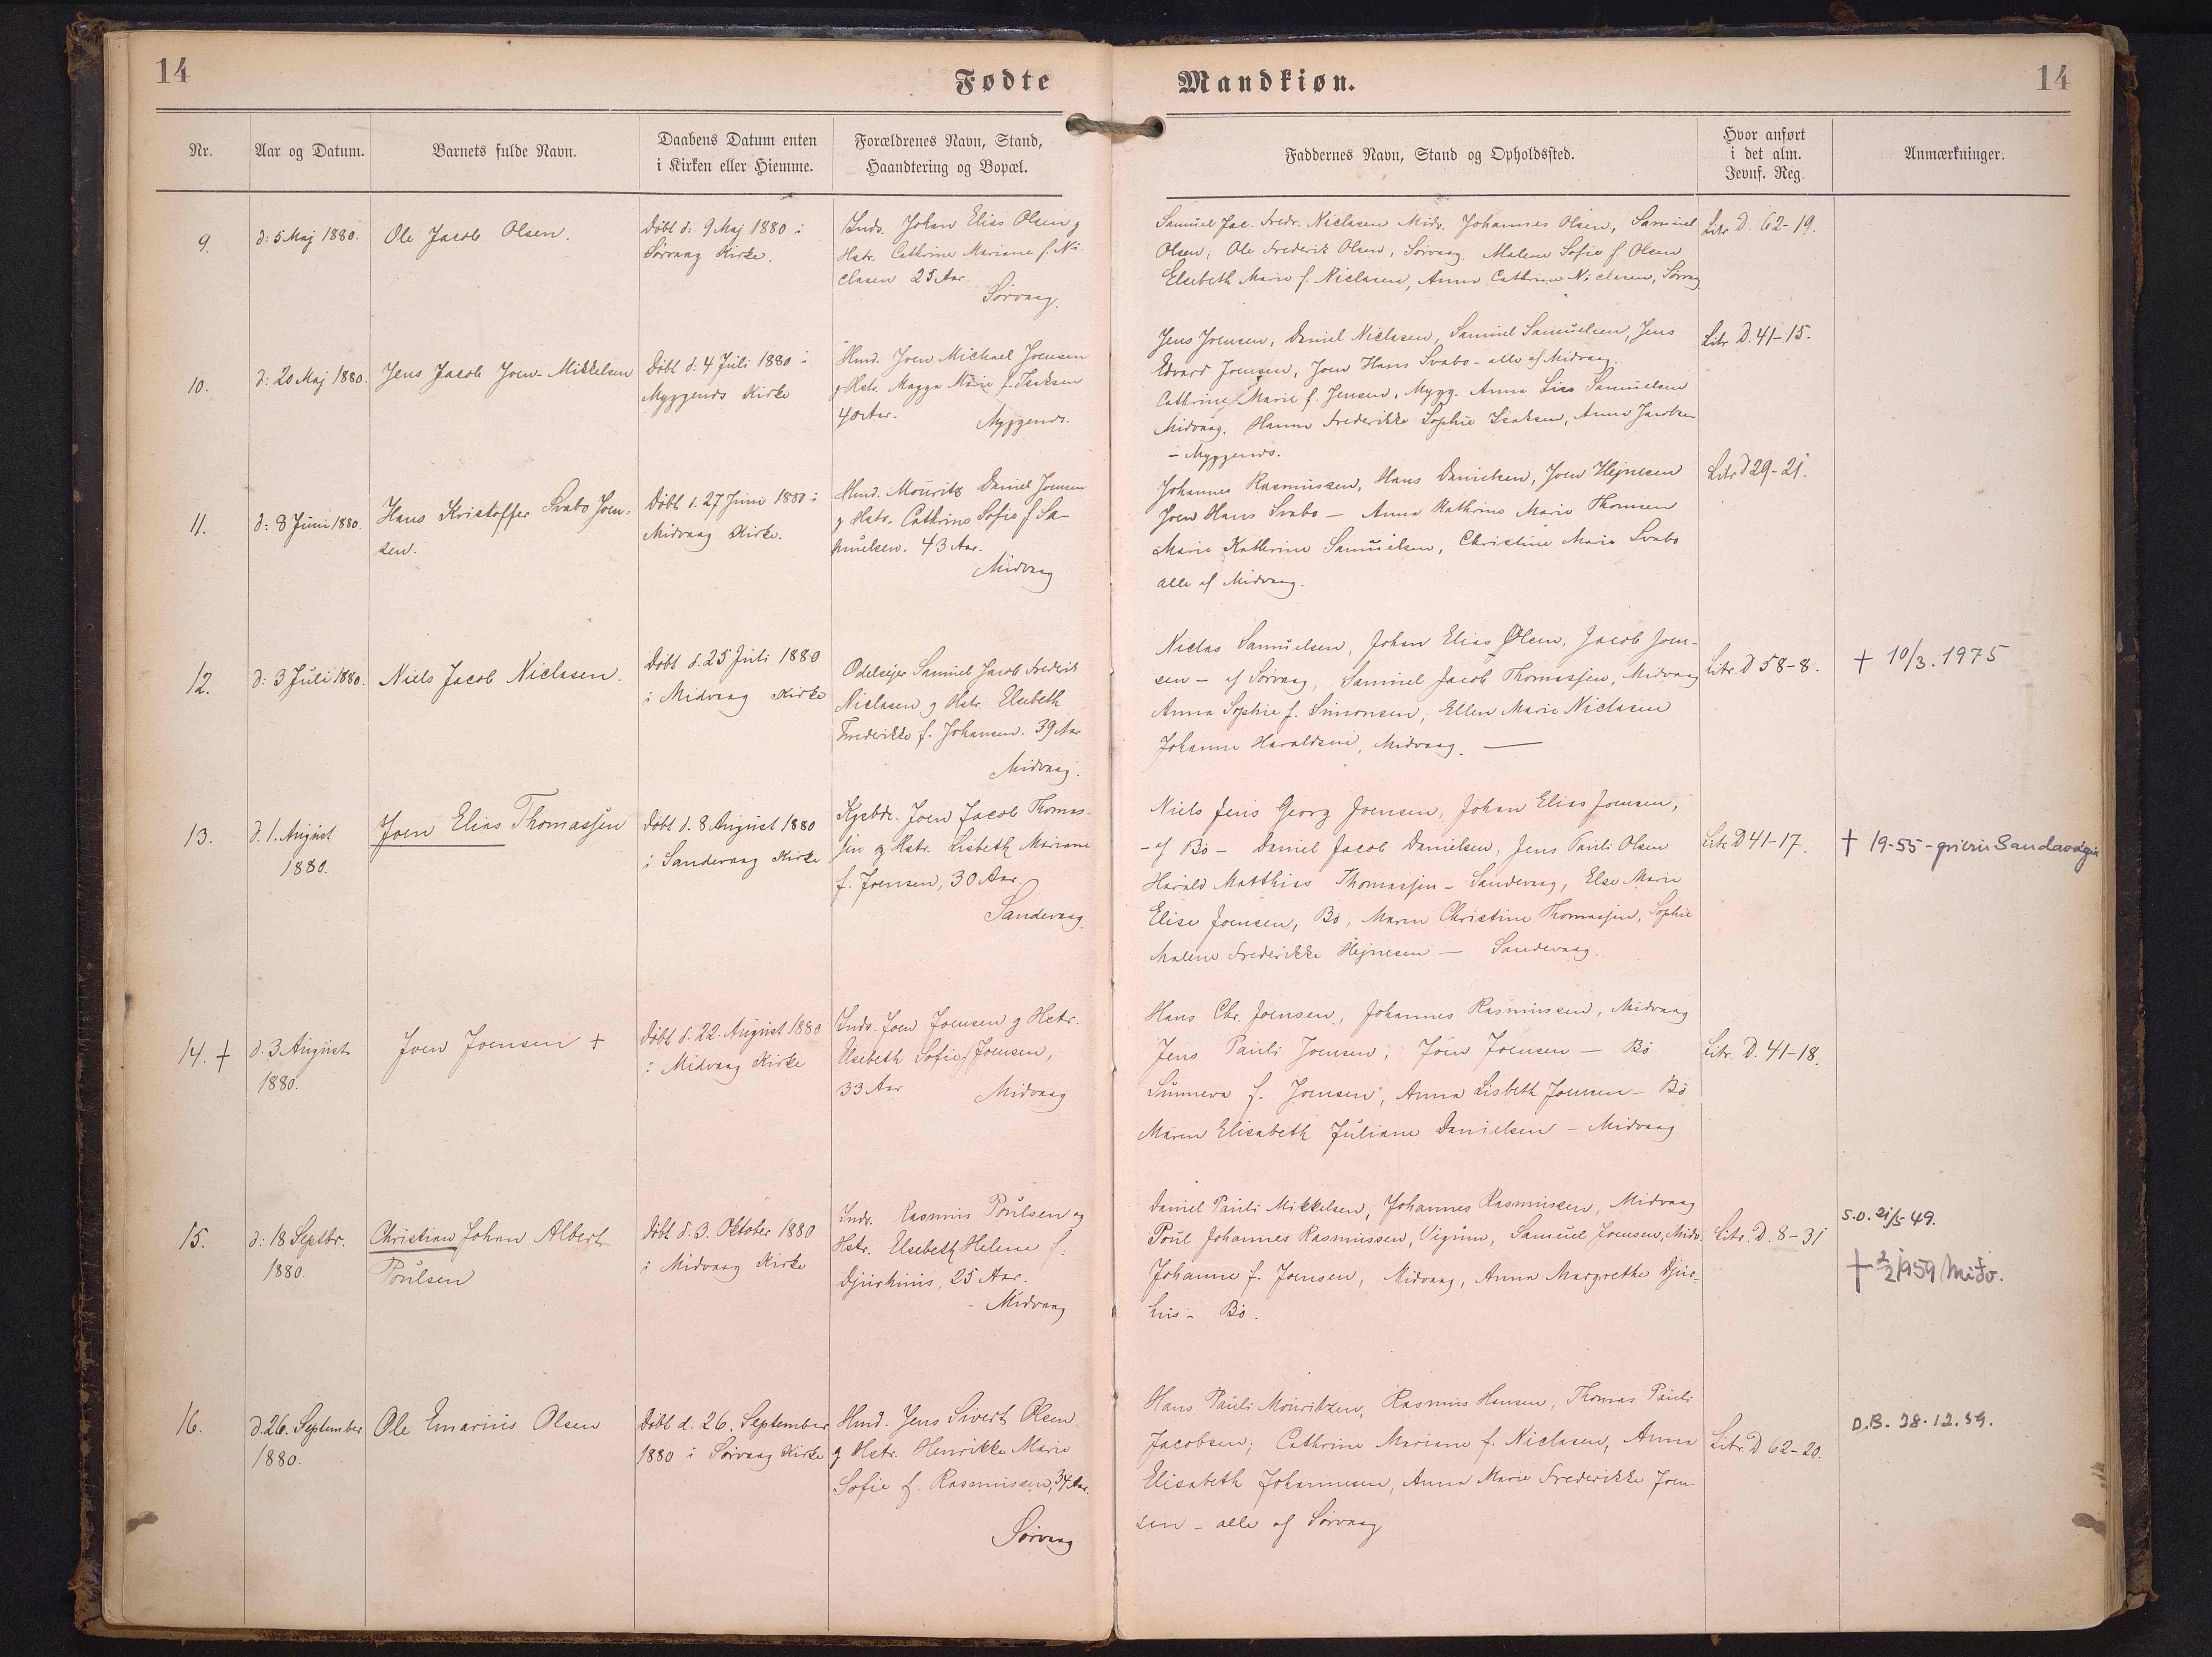 14
Fødte
Mandkiøn.
14
Nr.
Aar og Datum.
Barnets fulde Navn.
Daabens Datum enten
i Kirken eller Hiemme.
Forældrenes Navn, Stand,
Haandtering og Bopæl.
Faddernes Navn, Stand og Opholdssted.
Hvor anført
i det alm.
Jevnf. Reg.
Anmærkninger.
9.
d: 5 Maj 1880.
Ole Jacob Olsen.
Døbt d: 9 Maj 1880 i
Sørvaag Kirke.
Inds. Johan Elias Olsen g
Hstr. Cathrine Mariane f. Ni-
clasen 25 Aar.
Sørvaag.
Samuel Jac. Fredr. Niclasen Midv. Johannes Olsen, Samuel
Olsen, Ole Frederik Olsen, Sørvaag. Malene Sofie f. Olsen
Elsebeth Marie f. Niclasen, Anna Cathrine Niclasen, Sørvaag
Litr D. 62-19.
10.
d: 20 Maj 1880.
Jens Jacob Joen-Mikkelsen
Døbt d: 4 Juli 1880 i
Myggenæs Kirke
Hmd. Joen Michael Joensen
g Hstr. Magga Marie f. Isaksen
40 Aar.
Myggenæs.
Jens Joensen, Daniel Niclasen, Samuel Samuelsen, Jens
Edvard Joensen, Joen Hans Svabo - alle af Midvaag.
Cathrine Marie f. Jensen, Mygg. Anna Lisa Samuelsen
Midvaag. Hanna Frederikke Sophie Isaksen, Anna Jacobsen
- Myggenæs.
Litr D. 41-15.
11.
d: 8 Juni 1880.
Hans Kristoffer Svabo Joen-
sen.
Døbt d. 27 Juni 1880 i
Midvaag Kirke.
Hmd. Mouritz Daniel Joensen
g Hstr. Cathrine Sofie f. Sa-
muelsen. 43 Aar.
Midvaag
Johannes Rasmussen, Hans Danielsen, Joen Hejnesen
Joen Hans Svabo - Anna Kathrine Marie Thomsen
Marie Kathrine Samuelsen, Christine Marie Svabo
alle af Midvaag.
Litr D 29-21.
12.
d: 3 Juli 1880.
Niels Jacob Niclasen.
Døbt d. 25 Juli 1880
i Midvaag Kirke
Odelsejer Samuel Jacob Frederik
Niclasen g Hstr. Elsebeth
Frederikke f. Johansen. 39 Aar
Midvaag.
Niclas Samuelsen, Johan Elias Olsen, Jacob Joen-
sen - af Sørvaag, Samuel Jacob Thomassen, Midvaag
Anna Sophie f. Simonsen, Ellen Marie Niclasen
Johanne Haraldsen, Midvaag. —
Litr. D 58-8.
† 10/3. 1975
13.
d. 1. August
1880.
Joen Elias Thomassen
Døbt d. 8 August 1880
i Sandevaag Kirke
Kgsbde. Joen Jacob Thomas-
sen og Hstr. Lisbeth Mariane
f. Joensen, 30 Aar.
Sandevaag.
Niels Jens Georg Joensen, Johan Elias Joensen,
- af Bø - Daniel Jacob Danielsen, Jens Pauli Olsen
Harald Matthias Thomassen - Sandevaag, Else Marie
Elise Joensen, Bø, Maren Christine Thomassen, Sophie
Malene Frederikke Hejnesen — Sandevaag.
Litr D 41-17.
† 19-55- Sandavágin
14. †
d. 3 August
1880.
Joen Joensen +
Døbt d. 22. August 1880
i Midvaag Kirke
Inds. Joen Joensen g Hstr.
Elsebeth Sofie f. Joensen,
33 Aar
Midvaag
Hans Chr. Joensen, Johannes Rasmussen, Midvaag
Jens Pauli Joensen, Joen Joensen — Bø
Sunneva f. Joensen, Anna Lisbeth Joensen - Bø
Maren Elisabeth Juliane Danielsen - Midvaag
Litr. D. 41-18.
15.
d: 18 Septbr.
1880.
Christian Johan Albert
Poulsen
Døbt d. 3. Oktober 1880
i Midvaag Kirke
Inds. Rasmus Poulsen og
Hstr. Elsebeth Helene f:
Djurhuus, 25 Aar.
- Midvaag
Daniel Pauli Mikkelsen, Johannes Rasmussen, Midvaag
Poul Johannes Rasmussen, Viguum, Samuel Joensen, Midv.
Johanne f. Joensen, Midvaag, Anna Margrethe Djur-
hus - Bø.
Litr. D. 8-31
S.O. 21/5 49.
† 2/2 1959 Miðv.
16.
d. 26. September
1880.
Ole Emarius Olsen
Døbt d. 26. September
1880 i Sørvaag Kirke
Hmd. Jens Sivert Olsen
g Hstr. Henrikke Marie
Sofie f. Rasmussen, 34 Aar.
Sørvaag
Hans Pauli Mouritzen, Rasmus Hansen, Thomas Pauli
Jacobsen; Cathrine Mariane f. Niclasen, Anna
Elisabeth Johannesen, Anna Marie Frederikke Joen-
sen - alle af Sørvaag
Litr. D 62-20.
D.B. 28.12.59.